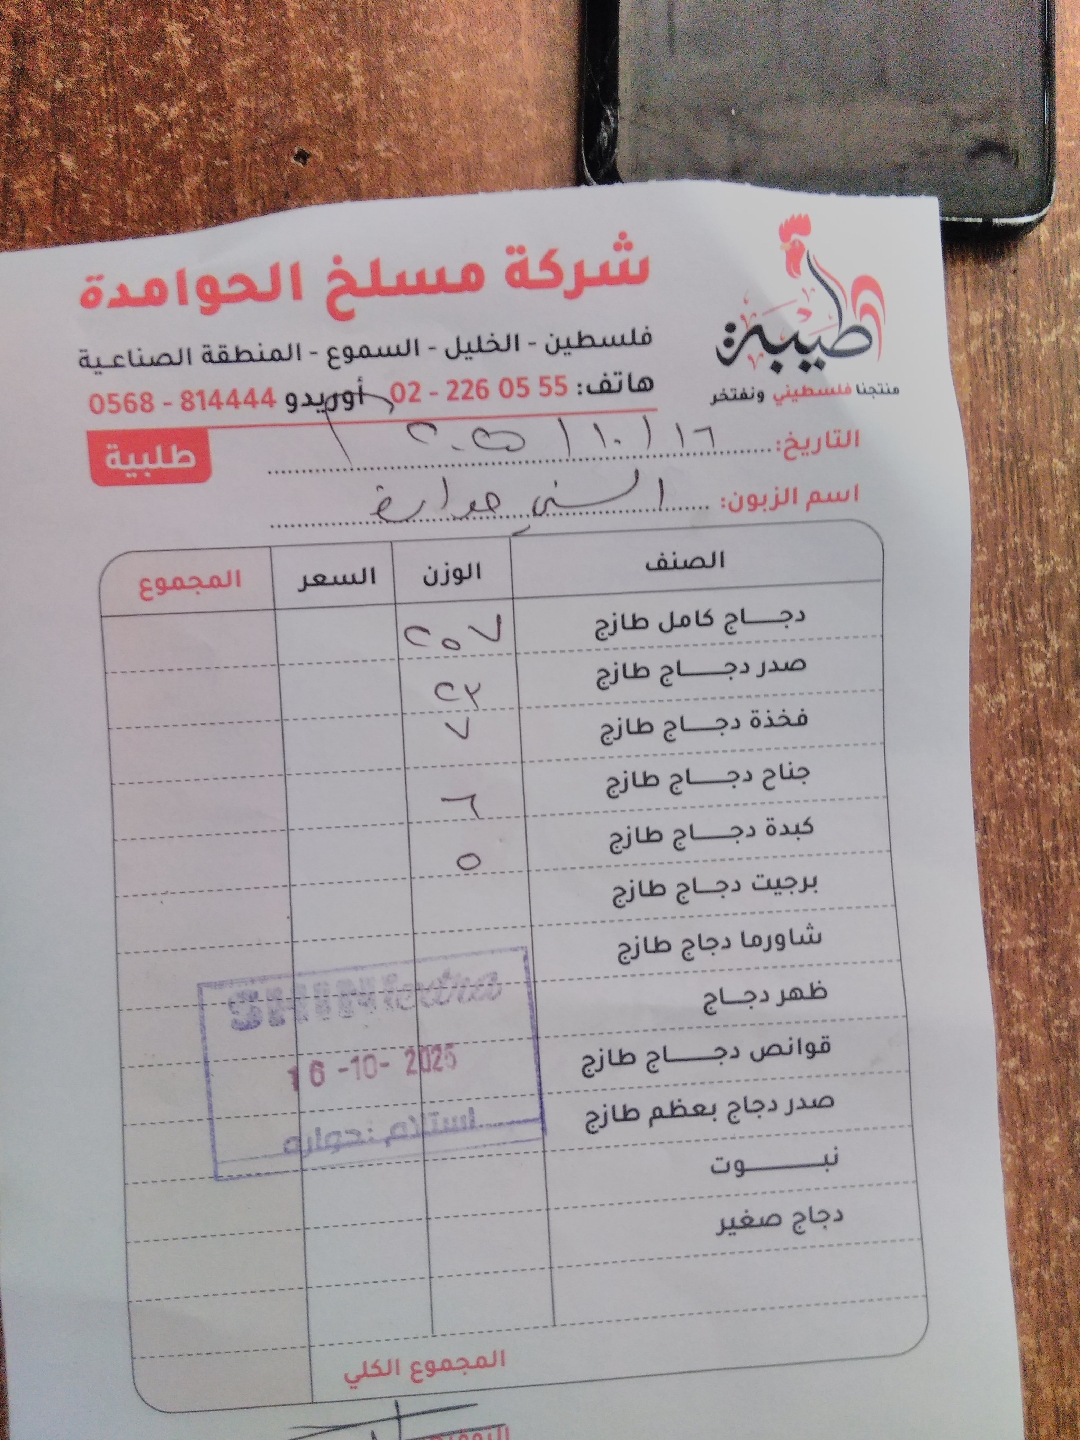 شركة مسلخ الحوامدة
فلسطين - الخليل - السموع - المنطقة الصناعية
هاتف: 02 - 226 05 55 أوريدو 0568 - 814444
طيبة
منتجنا فلسطيني ونفتخر
طلبية
التاريخ: ١٦ / ١٠ / ٢٠٢٥
اسم الزبون: السني حوارة
الصنف الوزن السعر المجموع
دجاج كامل طازج ٢٥٧
صدر دجاج طازج ٢٣
فخذة دجاج طازج ٧
جناح دجاج طازج ٦
كبدة دجاج طازج ٥
برجيت دجاج طازج
شاورما دجاج طازج
ظهر دجاج
قوانص دجاج طازج
صدر دجاج بعظم طازج
نبوت
دجاج صغير
SHINI extra
16 -10- 2025
استلام :حواره
المجموع الكلي